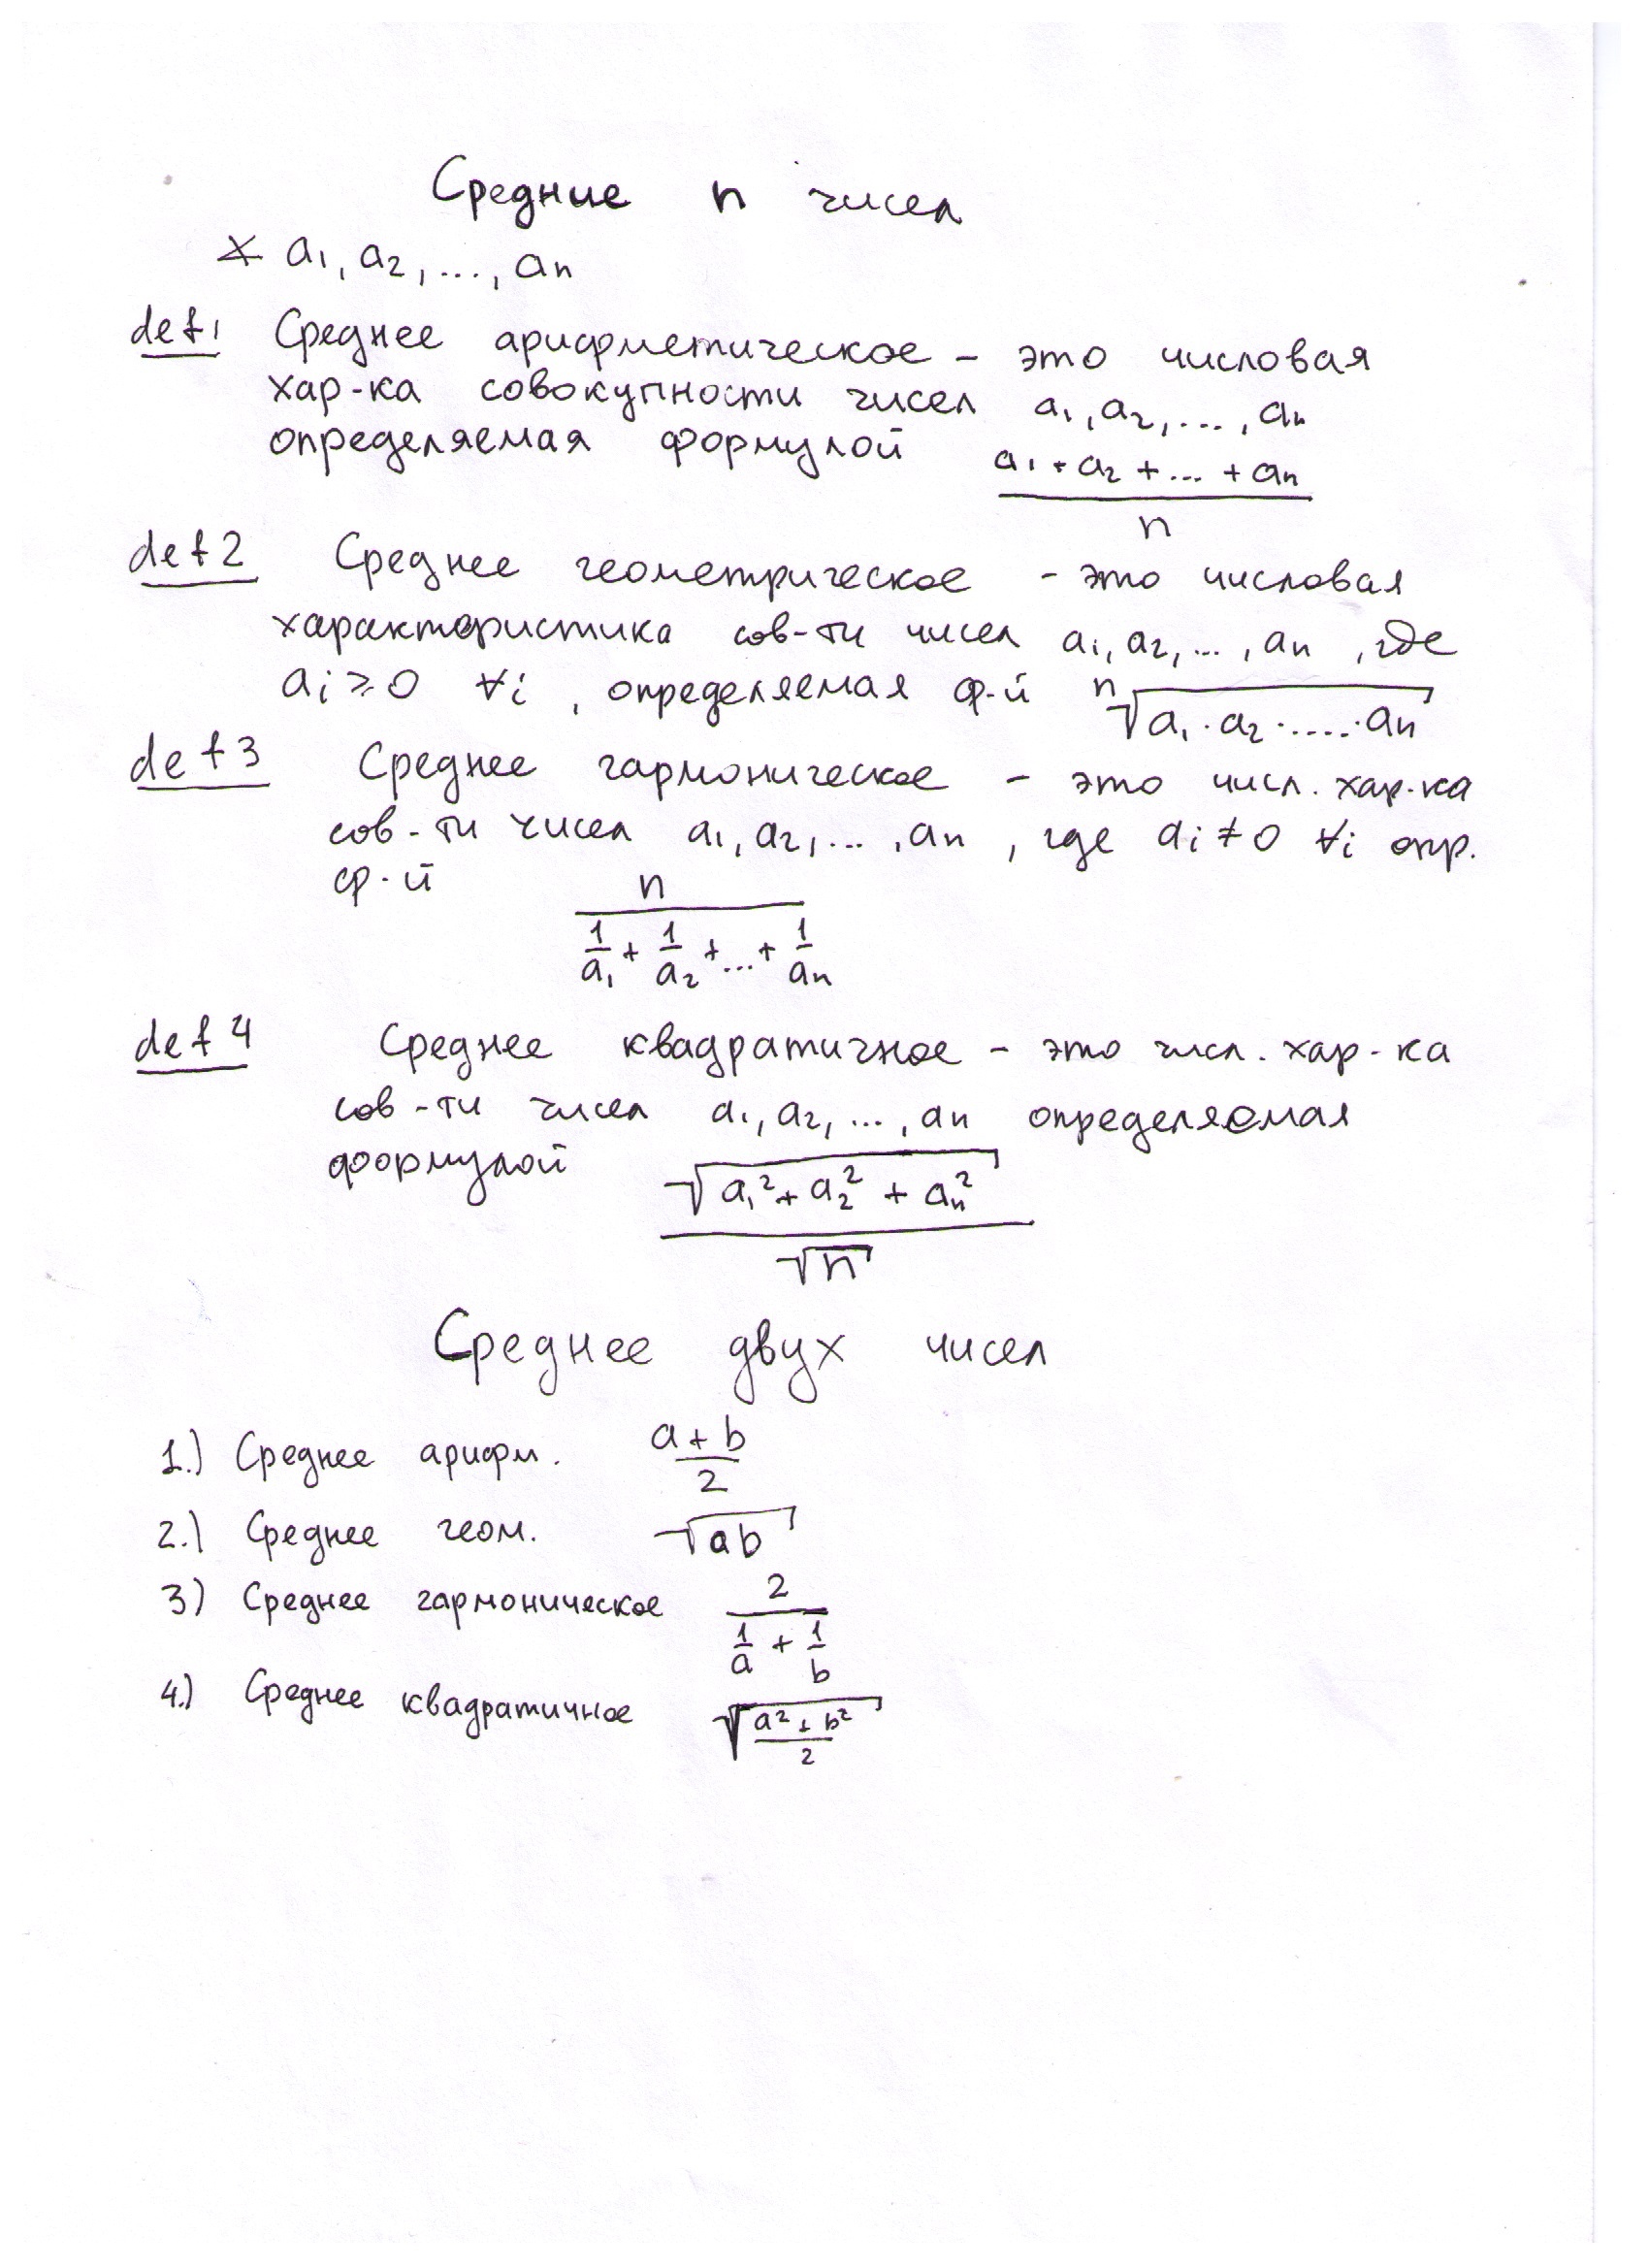 Средние n чисел
∗ a₁, a₂, ..., aₙ
def 1 Среднее арифметическое – это числовая
хар-ка совокупности чисел a₁, a₂, ..., aₙ
определяемая формулой (a₁ + a₂ + ... + aₙ) / n
def 2 Среднее геометрическое – это числовая
характеристика сов-ти чисел a₁, a₂, ..., aₙ, где
aᵢ ≥ 0 ∀i, определяемая ф-й ⁿ√(a₁ · a₂ · ..... · aₙ)
def 3 Среднее гармоническое – это числ. хар-ка
сов-ти чисел a₁, a₂, ..., aₙ, где aᵢ ≠ 0 ∀i опр.
ф-й n / (1/a₁ + 1/a₂ + ... + 1/aₙ)
def 4 Среднее квадратичное – это числ. хар-ка
сов-ти чисел a₁, a₂, ..., aₙ определяемая
формулой √(a₁² + a₂² + aₙ²) / √n
Среднее двух чисел
1.) Среднее арифм. (a + b) / 2
2.) Среднее геом. √(ab)
3) Среднее гармоническое 2 / (1/a + 1/b)
4.) Среднее квадратичное √((a² + b²) / 2)